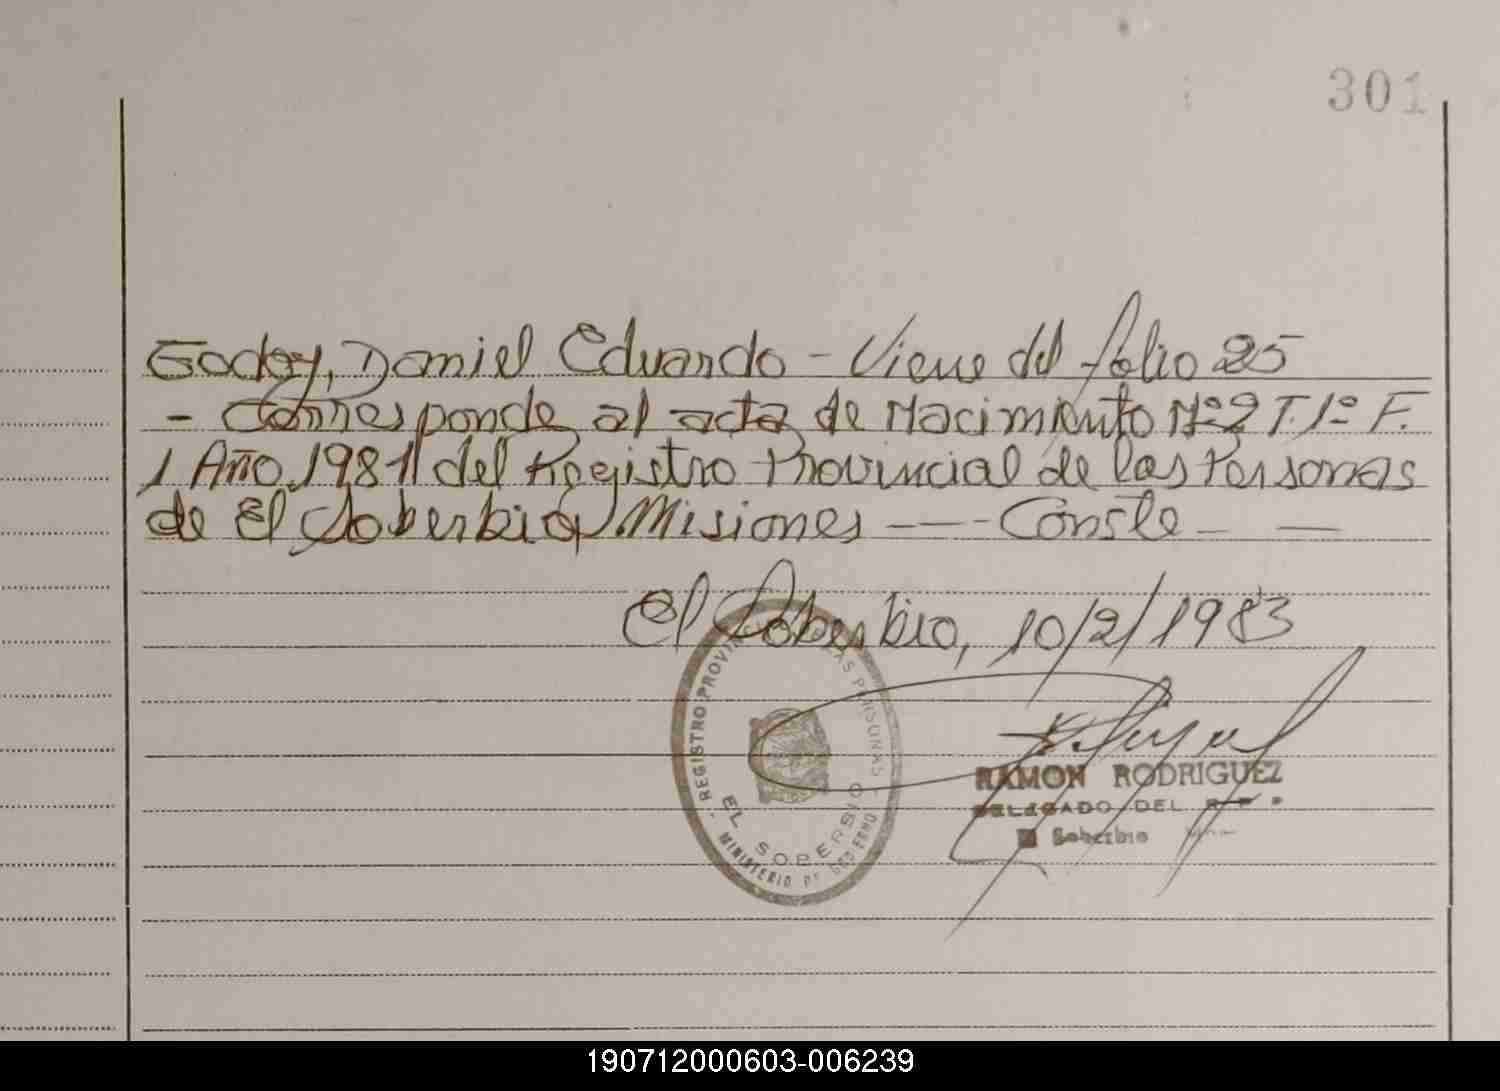 301
Godoy, Daniel Eduardo - Viene del folio 25
- Corresponde al acta de Nacimiento Nº 2 T. 1º F.
1 Año 1981 del Registro Provincial de las Personas
de El Soberbio, Misiones --- Conste - -
El Soberbio, 10/2/1983
REGISTRO PROVIN LAS PERSONAS
EL SOBERBIO
MINISTERIO DE GOBIERNO
RAMON RODRIGUEZ
DELEGADO DEL R P P
El Soberbio
190712000603-006239